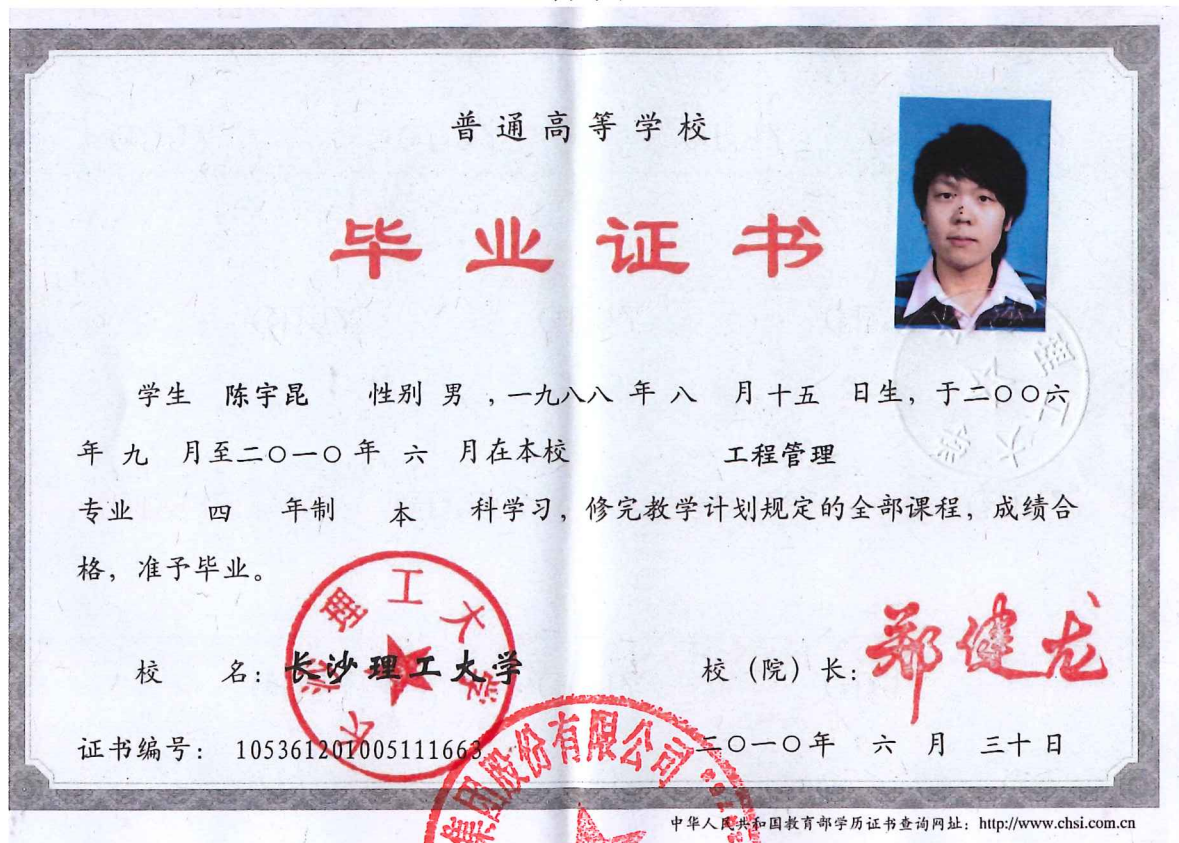 普通高等学校
毕业证书
学生 陈宇昆 性别 男 ，一九八八 年 八 月 十五 日生，于二〇〇六
年 九 月至二〇一〇 年 六 月在本校 工程管理
专业 四 年制 本 科学习，修完教学计划规定的全部课程，成绩合
格，准予毕业。
校 名：长沙理工大学
校（院）长：郑健龙
证书编号： 105361201005111663
二〇一〇年 六 月 三十日
长沙理工大学
集团股份有限公司
中华人民共和国教育部学历证书查询网址：http://www.chsi.com.cn